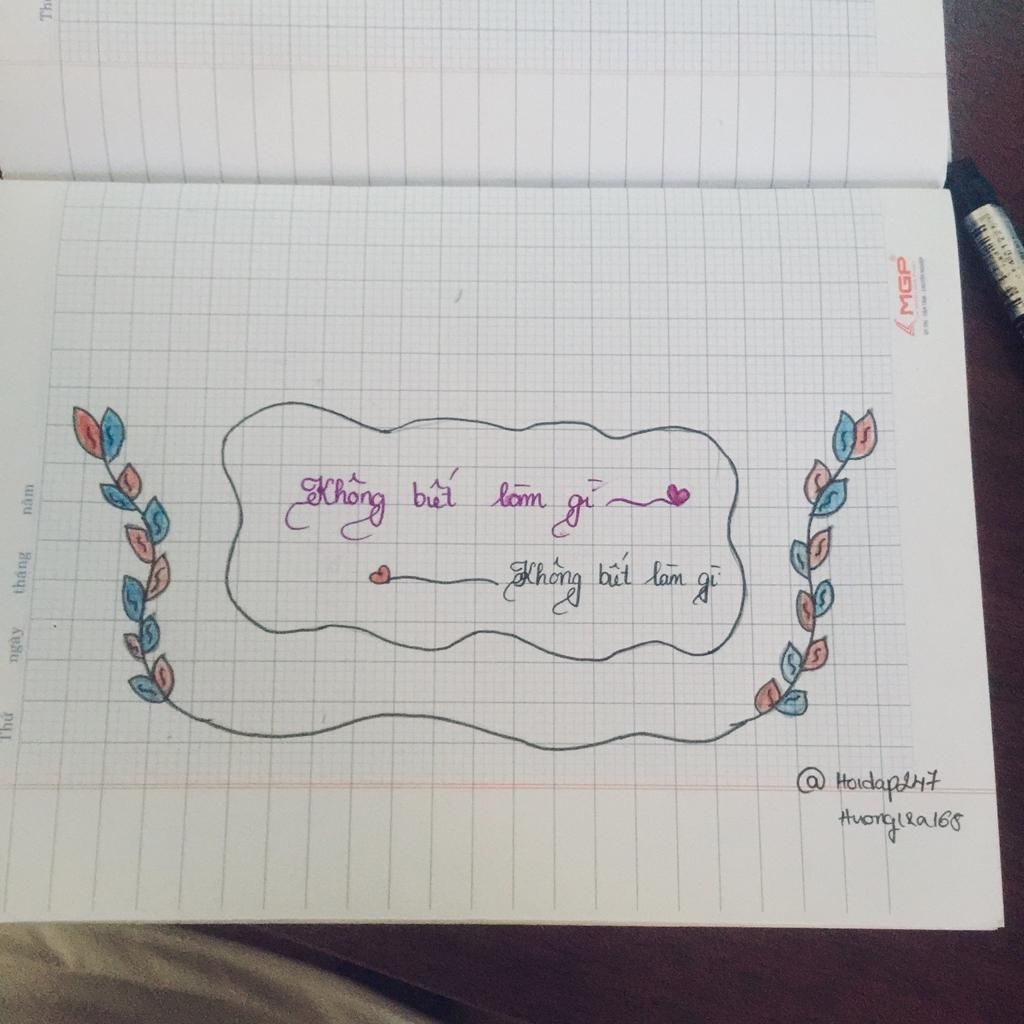 Thứ
MGP
Thứ ngày tháng năm
Không biết làm gì
Không biết làm gì
@ Hoidap247
Huong12a168